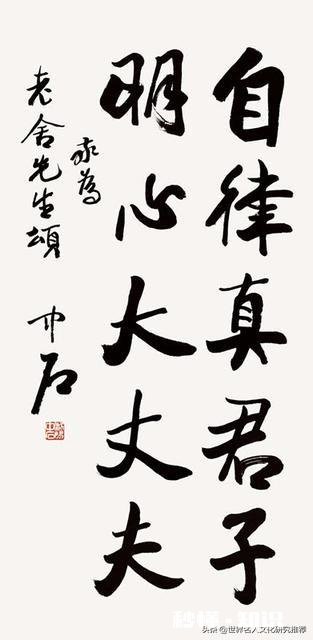 自律真君子
明心大丈夫
敬為
老舍先生頌
中石
秒懂 知识
头条 @世界名人文化研究推荐